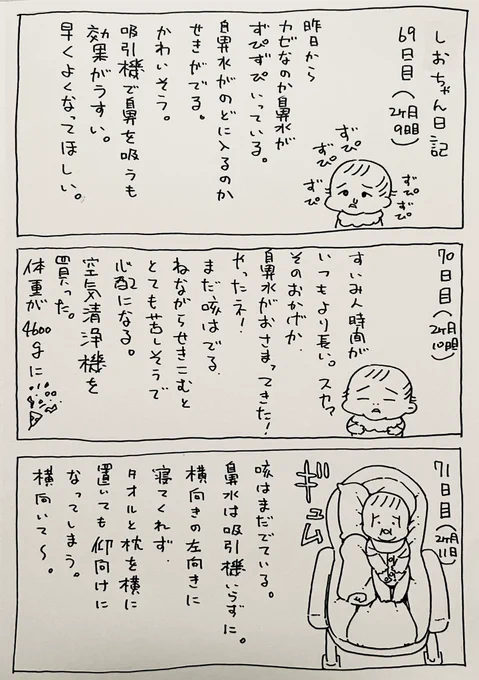 しおちゃん日記
69日目(2ヶ月9日目)
昨日から
カゼなのか鼻水が
ずぴずぴいっている。
鼻水がのどに入るのか
せきがでる。
かわいそう。
吸引機で鼻を吸うも
効果がうすい。
早くよくなってほしい。
ずぴ
ずぴ
ずぴ
ずぴ
ずぴ
70日目(2ヶ月10日目)
すいみん時間が
いつもより長い。スカッ
そのおかげか、
鼻水がおさまってきた!
やったネ!
まだ咳はでる。
ねながらせきこむと
とても苦しそうで
心配になる。
空気清浄機を
買った。
体重が4600gに
71日目(2ヶ月11日)
ギュム
咳はまだでている。
鼻水は吸引機いらずに。
横向きの左向きに
寝てくれず、
タオルと枕を横に
置いても仰向けに
なってしまう。
横向いて〜。